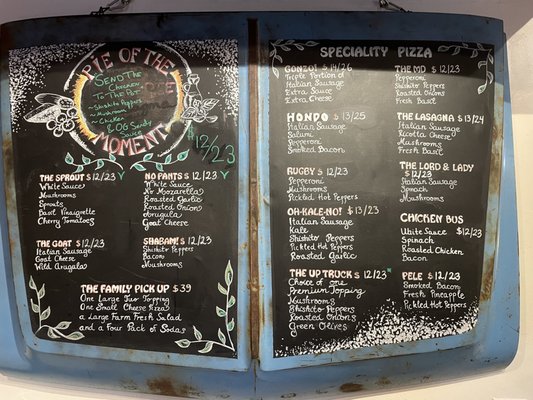 PIE OF THE
MOMENT
SEND THE
CHICKEN
TO THE PIT
- Shishito Peppers
- Mushroom
- Chicken
& OG Sandy
$12/23
THE SPROUT $12/23 V
White Sauce
Mushrooms
Sprouts
Basil Vinaigrette
Cherry Tomatoes
NO PANTS $12/23 V
White Sauce
No Mozzarella
Roasted Garlic
Roasted Onions
Arugula
Goat Cheese
THE GOAT $12/23
Italian Sausage
Goat Cheese
Wild Arugala
SHABAM! $12/23
Shishito Peppers
Bacon
Mushrooms
THE FAMILY PICK UP $39
One Large Two Topping
One Small Cheese Pizza
a Large Farm Fresh Salad
and a Four Pack of Sodas
SPECIALITY PIZZA
GONZO! $14/26
Triple Portion of
Italian Sausage
Extra Sauce
Extra Cheese
HONDO $13/25
Italian Sausage
Salami
Pepperoni
Smoked Bacon
RUGBY $12/23
Pepperoni
Mushrooms
Pickled Hot Peppers
OH-KALE-NO! $13/23
Italian Sausage
Kale
Shishito Peppers
Pickled Hot Peppers
Roasted Garlic
THE UP TRUCK $12/23
Choice of one
Premium Topping
Mushrooms
Shishito Peppers
Roasted Onions
Green Olives
THE MD $12/23
Pepperoni
Shishito Peppers
Roasted Onions
Fresh Basil
THE LASAGNA $13/24
Italian Sausage
Ricotta Cheese
Mushrooms
Fresh Basil
THE LORD & LADY
$12/23
Italian Sausage
Spinach
Mushrooms
CHICKEN BUS
White Sauce $12/23
Spinach
Roasted Chicken
Bacon
PELE $12/23
Smoked Bacon
Fresh Pineapple
Pickled Hot Peppers